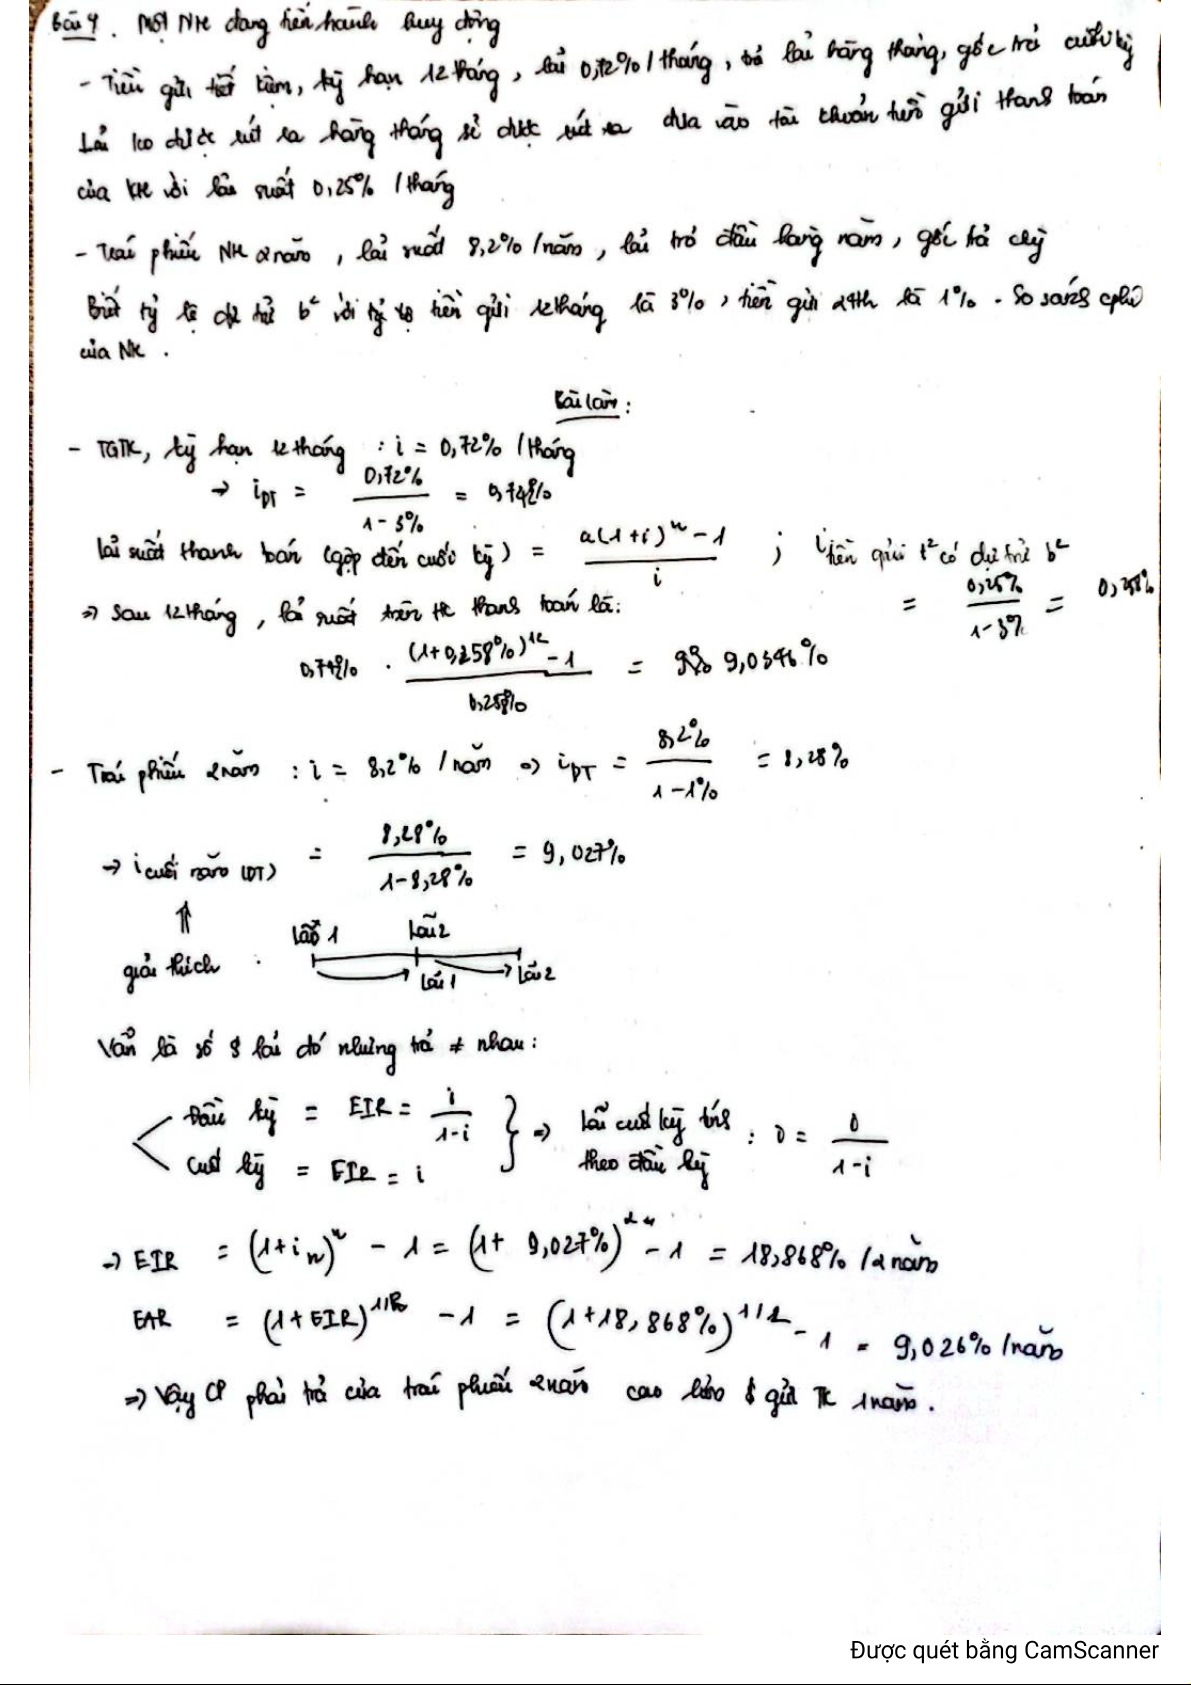 Bài 4. Một NH đang tiến hành huy động
- Tiền gửi tiết kiệm, kỳ hạn 12 tháng, lãi 0,72%/tháng, trả lãi hàng tháng, gốc trả cuối kỳ
Lãi ko được rút ra hàng tháng sẽ được rút ra đưa vào tài khoản tiền gửi thanh toán
của KH với lãi suất 0,25% /tháng
- Trái phiếu NH 2 năm, lãi suất 8,2% /năm, lãi trả đầu hàng năm, gốc trả ckỳ
Biết tỷ lệ dự trữ b² với tiền gửi 12 tháng là 3%, tiền gửi 24th là 1%. So sánh cphí
của NH.
Bài làm:
- TGTK, kỳ hạn 12 tháng : i = 0,72% /tháng
→ iDT = 0,72% / (1 - 3%) = 0,742%
lãi suất thanh toán (gộp đến cuối kỳ) = a(1+i)ⁿ - 1 / i ; i tiền gửi t² có dự trữ b²
= 0,25% / (1 - 3%) = 0,258%
⇒ Sau 12 tháng, lãi suất trên tk thanh toán là:
0,742% . (1+0,258%)¹² - 1 / 0,258% = 9,0346%
- Trái phiếu 2 năm : i = 8,2% /năm ⇒ iDT = 8,2% / (1 - 1%) = 8,28%
→ i cuối năm (DT) = 8,28% / (1 - 8,28%) = 9,027%
⇑
giải thích :
Lãi 1 Lãi 2
Lãi 1 Lãi 2
Vẫn là số $ lãi đó nhưng trả ≠ nhau:
Đầu kỳ = EIR = i / (1-i)
Cuối kỳ = EIR = i
} ⇒ lãi cuối kỳ tính theo đầu kỳ : 0 = 0 / (1-i)
→ EIR = (1+iₙ)ⁿ - 1 = (1+ 9,027%)² - 1 = 18,868% /2 năm
EAR = (1+EIR)^1/n - 1 = (1+18,868%)^1/2 - 1 = 9,026% /năm
⇒ Vậy CP phải trả của trái phiếu 2 năm cao hơn $ gửi TK 1 năm.
Được quét bằng CamScanner